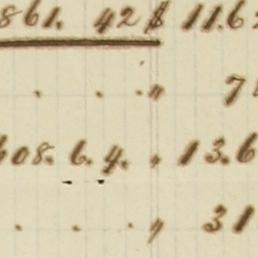 861. 42 $ 11.62
. . . " 7
608. 6. 4. " 13.6
. . . " 31